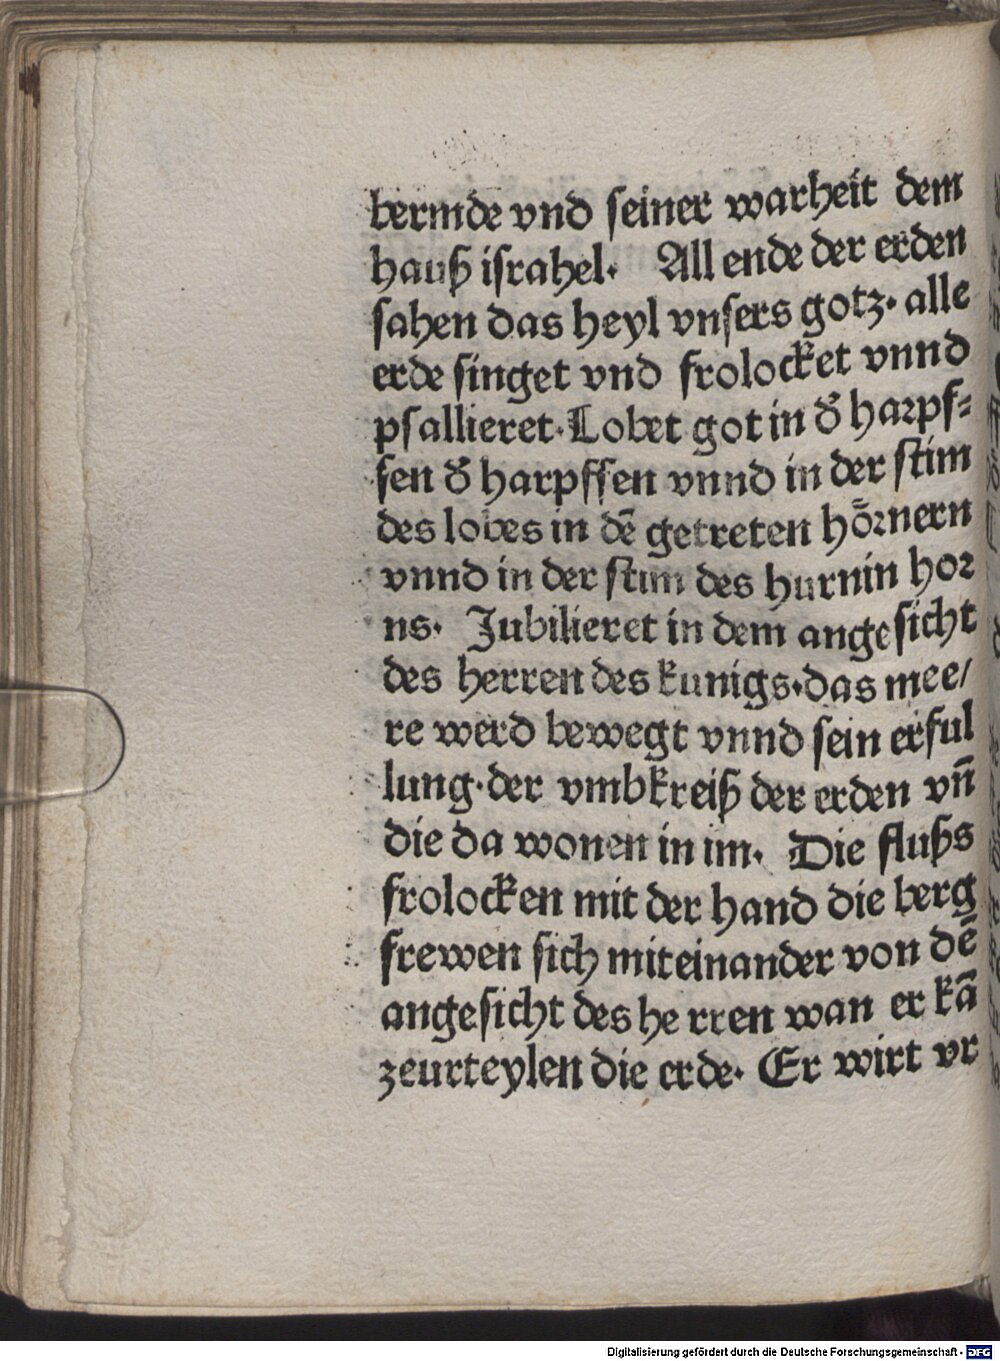 bermde vnd seiner warheit dem
hauß israhel. All ende der erden
sahen das heyl vnsers gotz. alle
erde singet vnd frolocket vnnd
psallieret. Lobet got in d̛ harpf⸗
fen d̛ harpffen vnnd in der stim
des lobes in dē getreten hoͤrnern
vnnd in der stim des hurnin hor
ns. Jubilieret in dem angesicht
des herren des kunigs. das mee/
re werd bewegt vnnd sein erful
lung. der vmbkreiß der erden vn̄
die da wonen in im. Die flußs
frolocken mit der hand die berg
frewen sich miteinander von dē
angesicht des he rren wan er kā
zeurteylen die erde. Er wirt vr
Digitalisierung gefördert durch die Deutsche Forschungsgemeinschaft - DFG